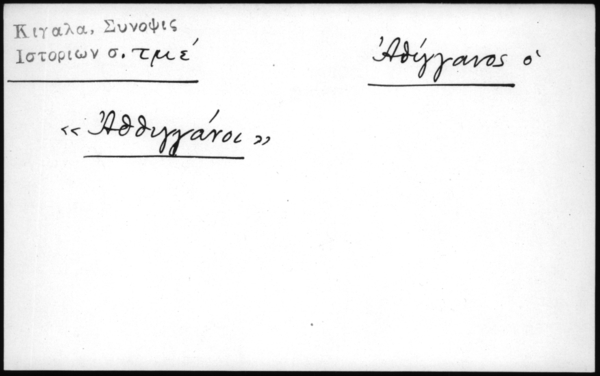 Κιγαλα, Συνοψις
Ιστοριων σ. τμέ
Ἀθίγγανος ὁ
«Ἀθθιγγάνοι»